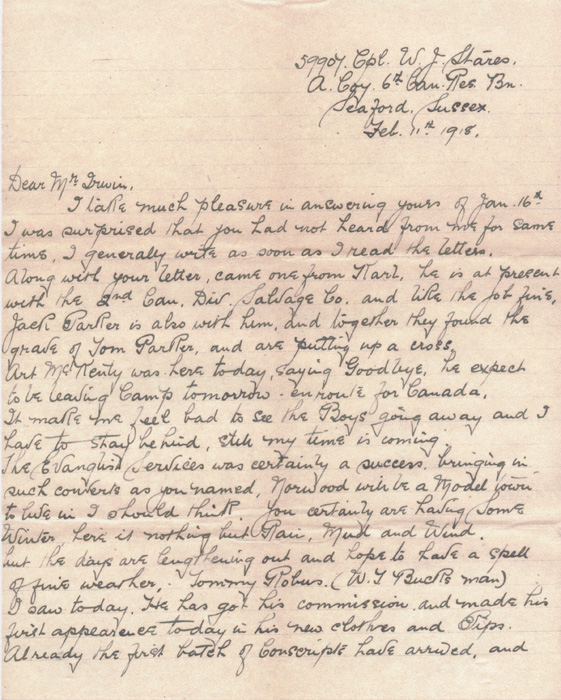 59907. Cpl. W. J. Stares.
A. Coy. 6th Can. Res. Bn.
Seaford, Sussex.
Feb. 11th 1918.
Dear Mr. Irwin,
I take much pleasure in answering yours of Jan. 16th
I was surprised that you had not heard from me for some
time, I generally write as soon as I read the letters.
Along with your letter, came one from Karl, he is at present
with the 2nd Can. Div. Salvage Co. and like the job fine,
Jack Parker is also with him, and together they found the
grave of Tom Parker, and are putting up a cross,
Art McKenty was here today, saying Goodbye, he expect
to be leaving Camp tomorrow enroute for Canada,
It make me feel bad to see the Boys going away and I
have to stay behind, still my time is coming
The Evanglist Services was certainly a success, bringing in
such converts as you named, Norwood will be a Model town
to live in I should think. You certainly are having some
Winter, here is nothing but Rain, Mud and Wind.
but the days are lengthening out and hope to have a spell
of fine weather, Tommy Robus. (W. J Bucks man)
I saw today, He has got his commission and made his
first appearence today in his new clothes and Pips.
Already the first batch of Conscripts have arrived, and